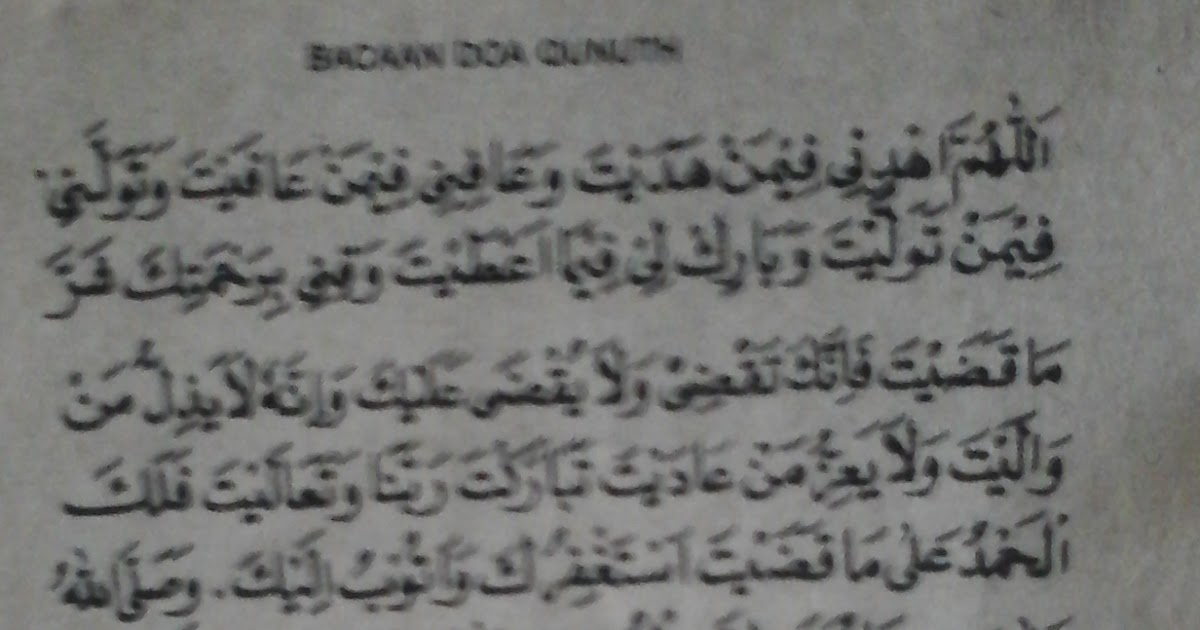 BACAAN DOA QUNUTH
اَللّٰهُمَّ اهْدِنِي فِيْمَنْ هَدَيْتَ وَعَافِنِي فِيْمَنْ عَافَيْتَ وَتَوَلَّنِي
فِيْمَنْ تَوَلَّيْتَ وَبَارِكْ لِيْ فِيْمَا اَعْطَيْتَ وَقِنِي بِرَحْمَتِكَ شَرَّ
مَا قَضَيْتَ فَاِنَّكَ تَقْضِيْ وَلَا يُقْضَى عَلَيْكَ وَاِنَّهُ لَا يَذِلُّ مَنْ
وَالَيْتَ وَلَا يَعِزُّ مَنْ عَادَيْتَ تَبَارَكْتَ رَبَّنَا وَتَعَالَيْتَ فَلَكَ
الْحَمْدُ عَلٰى مَا قَضَيْتَ اَسْتَغْفِرُكَ وَاَتُوْبُ اِلَيْكَ. وَصَلَّى اللهُ